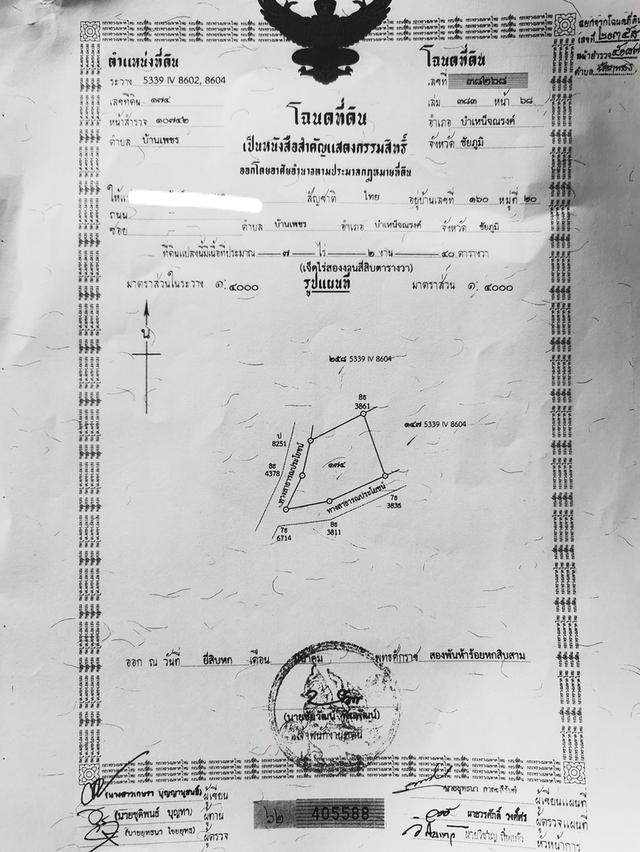 เลขที่
ตำแหน่งที่ดิน
โฉนดที่ดิน
ระวาง 5339 IV 8602, 8604
เลขที่ ๓๘๒๖๘
เลขที่ดิน ๑๗๔
เล่ม ๓๘๓ หน้า ๖๘
หน้าสำรวจ ๑๐๗๔๒
อำเภอ บำเหน็จณรงค์
ตำบล บ้านเพชร
จังหวัด ชัยภูมิ
โฉนดที่ดิน
เป็นหนังสือสำคัญแสดงกรรมสิทธิ์
ออกโดยอาศัยอำนาจตามประมวลกฎหมายที่ดิน
ให้แก่ สัญชาติ ไทย อยู่บ้านเลขที่ ๑๖๐ หมู่ที่ ๒๐
ถนน
ซอย ตำบล บ้านเพชร อำเภอ บำเหน็จณรงค์ จังหวัด ชัยภูมิ
ที่ดินแปลงนี้มีเนื้อที่ประมาณ ๗ ไร่ ๒ งาน ๔๐ ตารางวา
(เจ็ดไร่สองงานสี่สิบตารางวา)
มาตราส่วนในระวาง ๑: ๔๐๐๐ รูปแผนที่ มาตราส่วน ๑: ๔๐๐๐
น
๒๕๘ 5339 IV 8604
8ธ
3861
๑๔๗ 5339 IV 8604
ป
8251
8ธ
4378
ทางสาธารณประโยชน์
๑๗๔
ทางสาธารณประโยชน์
7ธ
3836
7ธ
6714
8ธ
3811
ออก ณ วันที่ ยี่สิบหก เดือน มีนาคม พุทธศักราช สองพันห้าร้อยหกสิบสาม
เจ้าพนักงานที่ดิน
ผู้เขียน
ผู้เขียนแผนที่
(นายชุติพนธ์ บุญทา) ผู้ทาน
๖๒ 405588
นายวรศักดิ์ วงศ์ศร ผู้ตรวจแผนที่
(นายยุทธนา ไชยยุทธ) ผู้ตรวจ
หัวหน้าการ